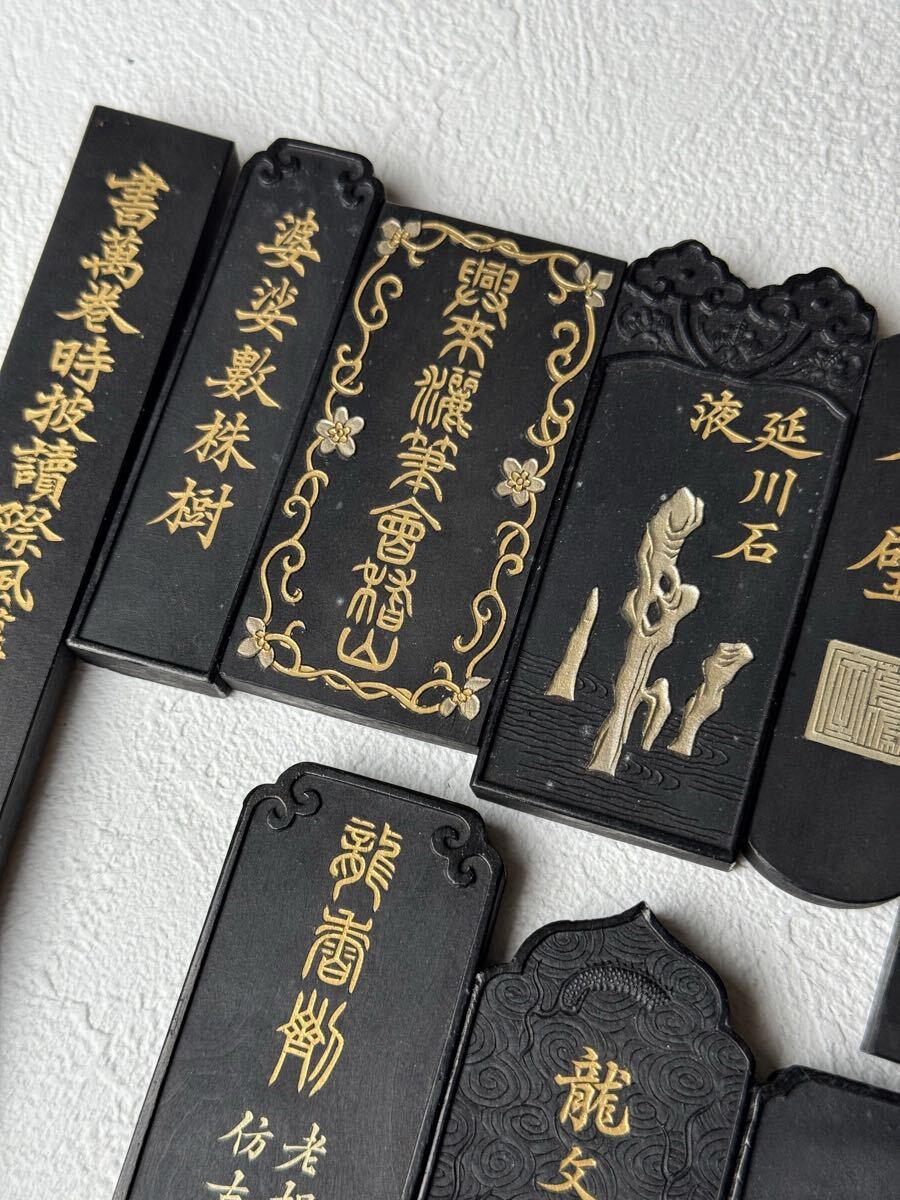 書萬卷時披讀際風
婆娑數株樹
興來灑筆會稽山
延川石
液
龍香劑
老
仿古
龍文